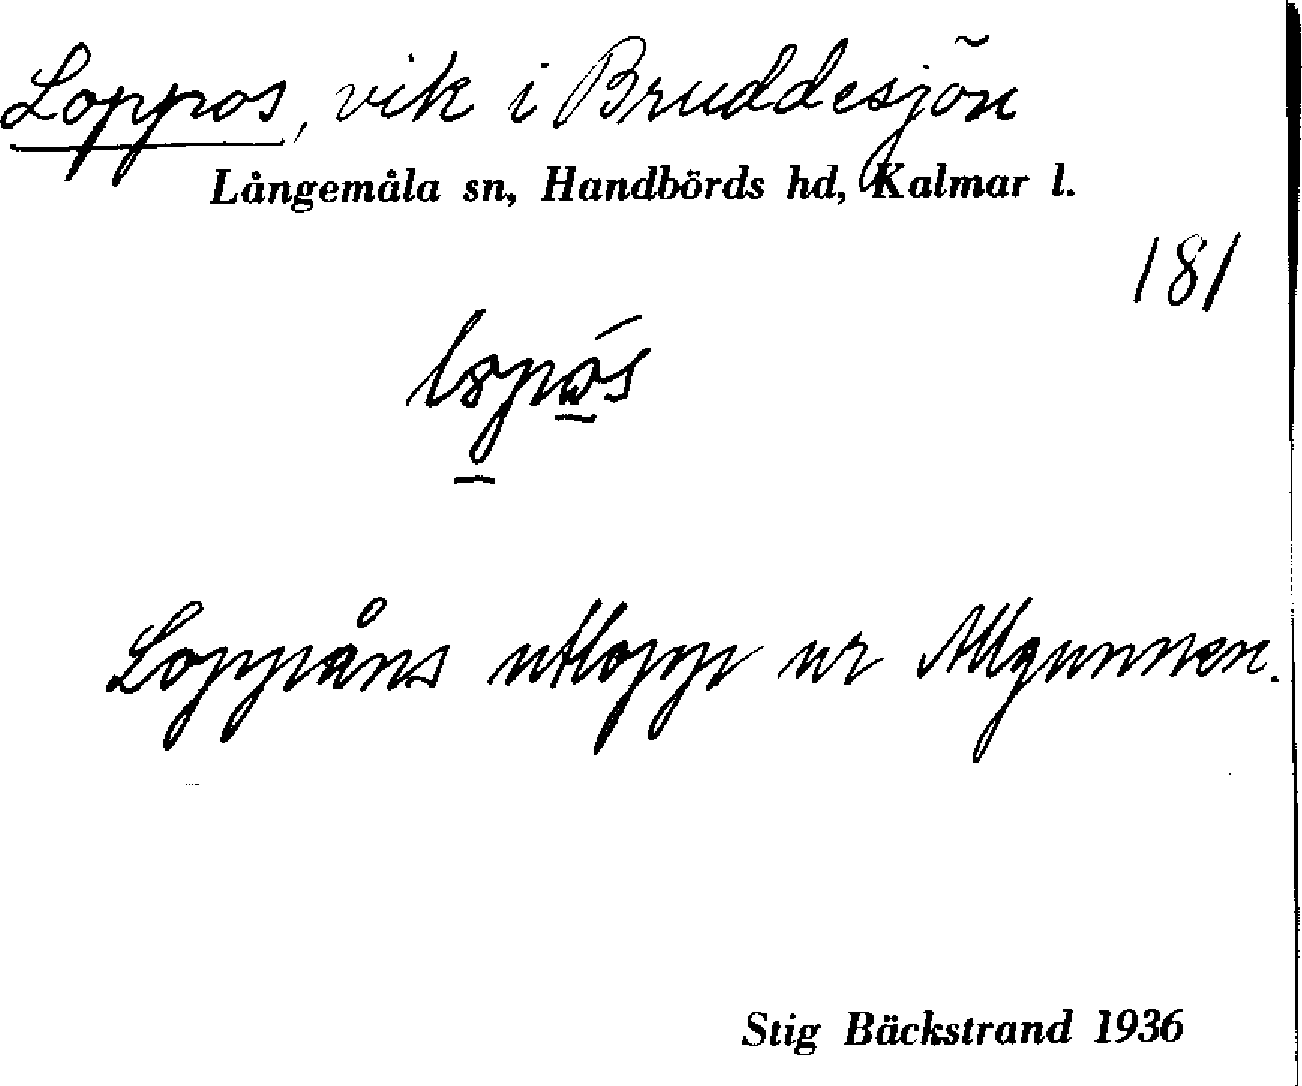 Loppos, vik i Bruddesjön
Långemåla sn, Handbörds hd, Kalmar l.
181
Loppåns utlopp ur Allgunnen.
Stig Bäckstrand 1936